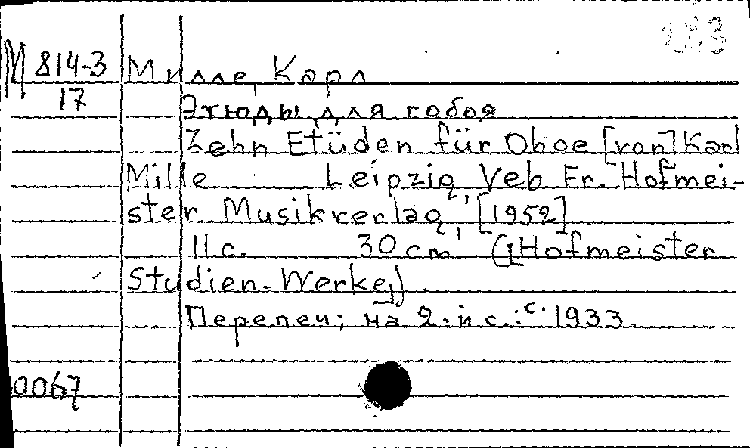 М 814-3
17
Милле, Карл
Этюды для гобоя
Zehn Etüden für Oboe [von] Karl
Mille Leipzig, Veb Fr. Hofmei-
ster Musikverlag, [1952]
11 с. 30 cm ("Hofmeister
Studien-Werke")
Перепеч; на 2-й с.: с. 1933
0067